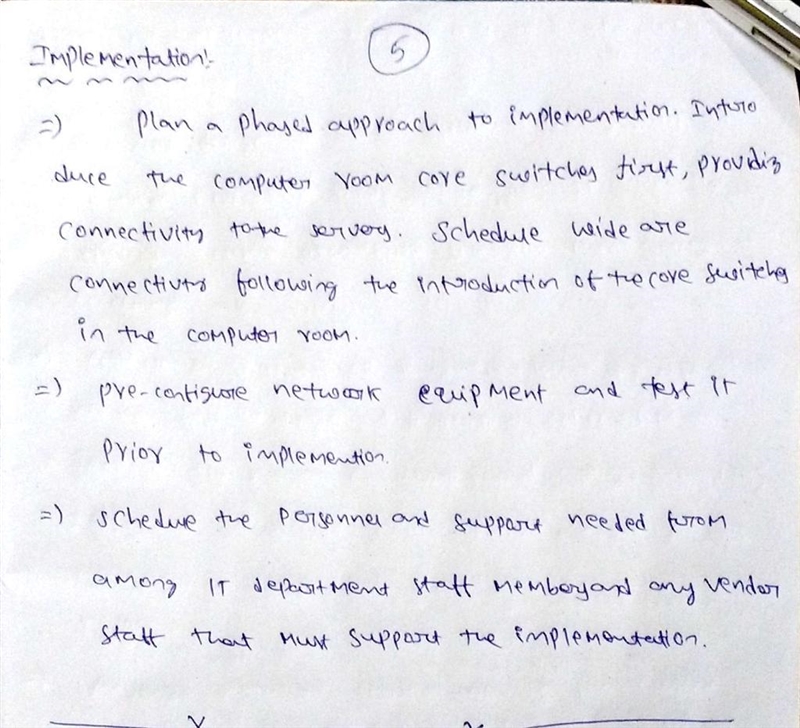 5
Implementation:-
=) Plan a phased approach to implementation. Intro
duce the computer room core switches first, providig
connectivity to the servers. Schedule wide are
connectivty following the introduction of the core switches
in the computer room.
=) pre-configure network equipment and test it
prior to implemention.
=) schedule the personnel and support needed from
among IT department staff members and any vendor
staff that must support the implementation.